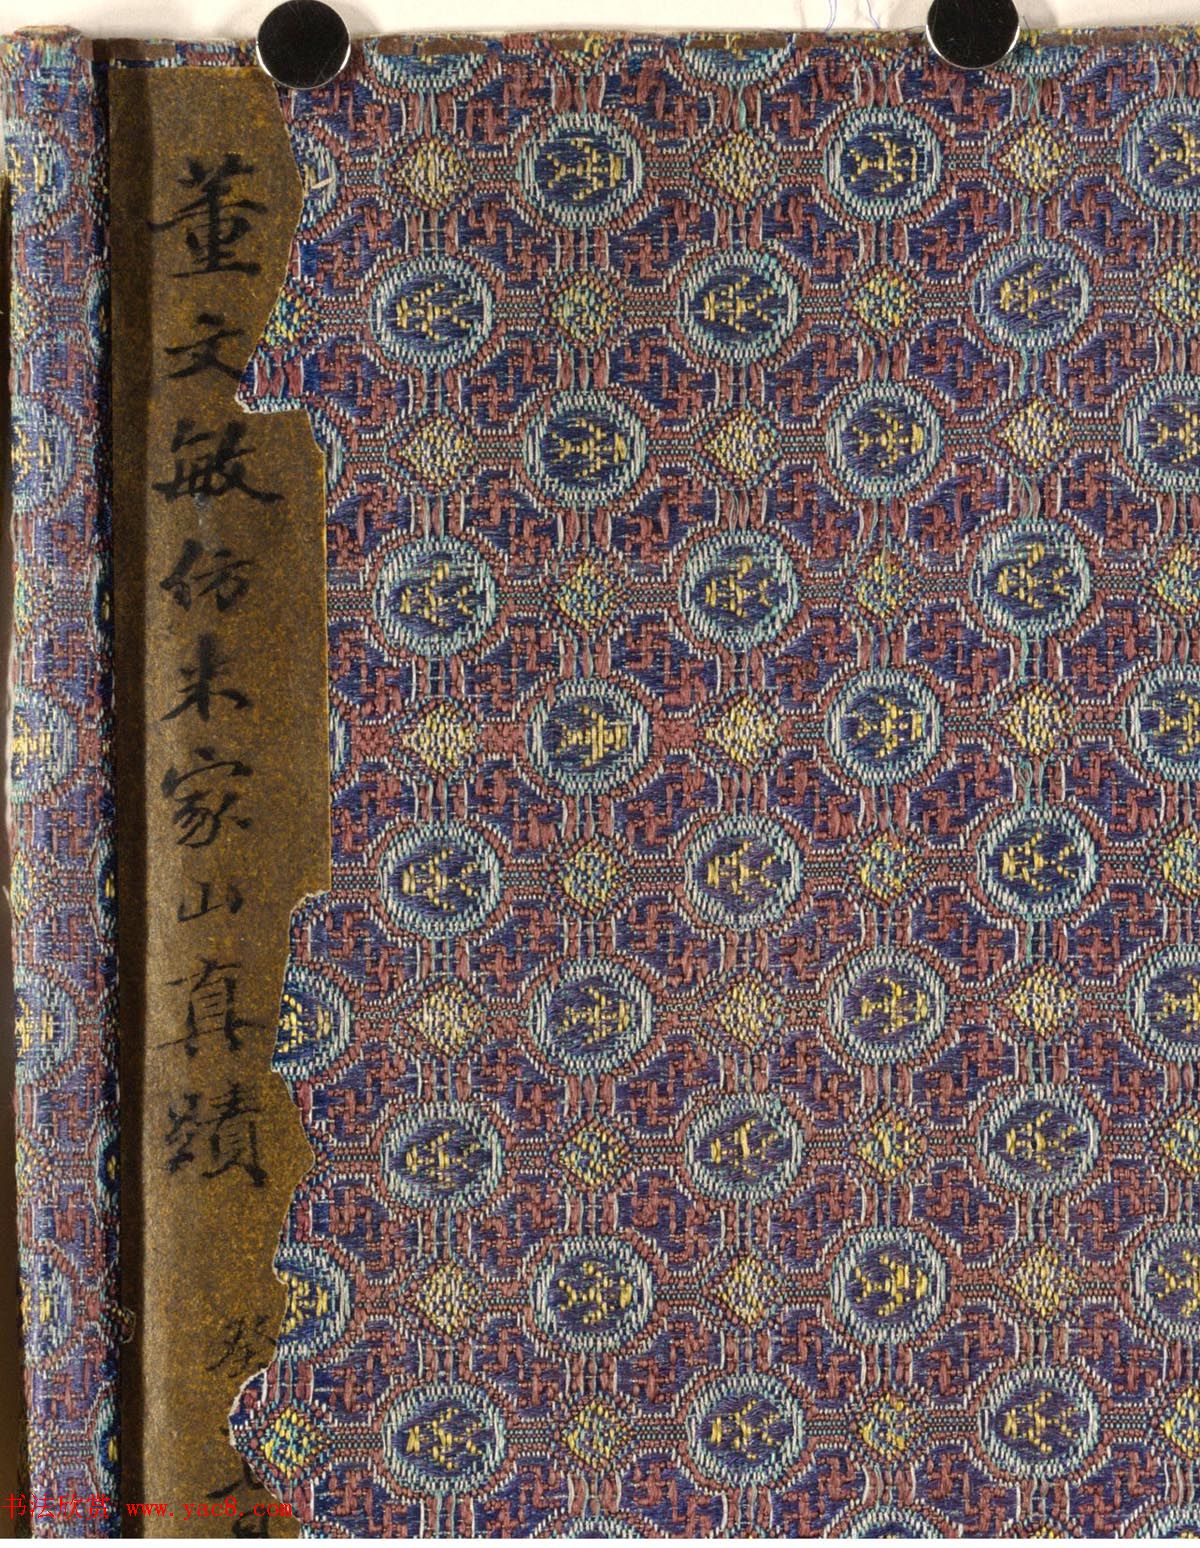 董文敏仿米家山真蹟
癸
书法欣赏 www.yac8.com